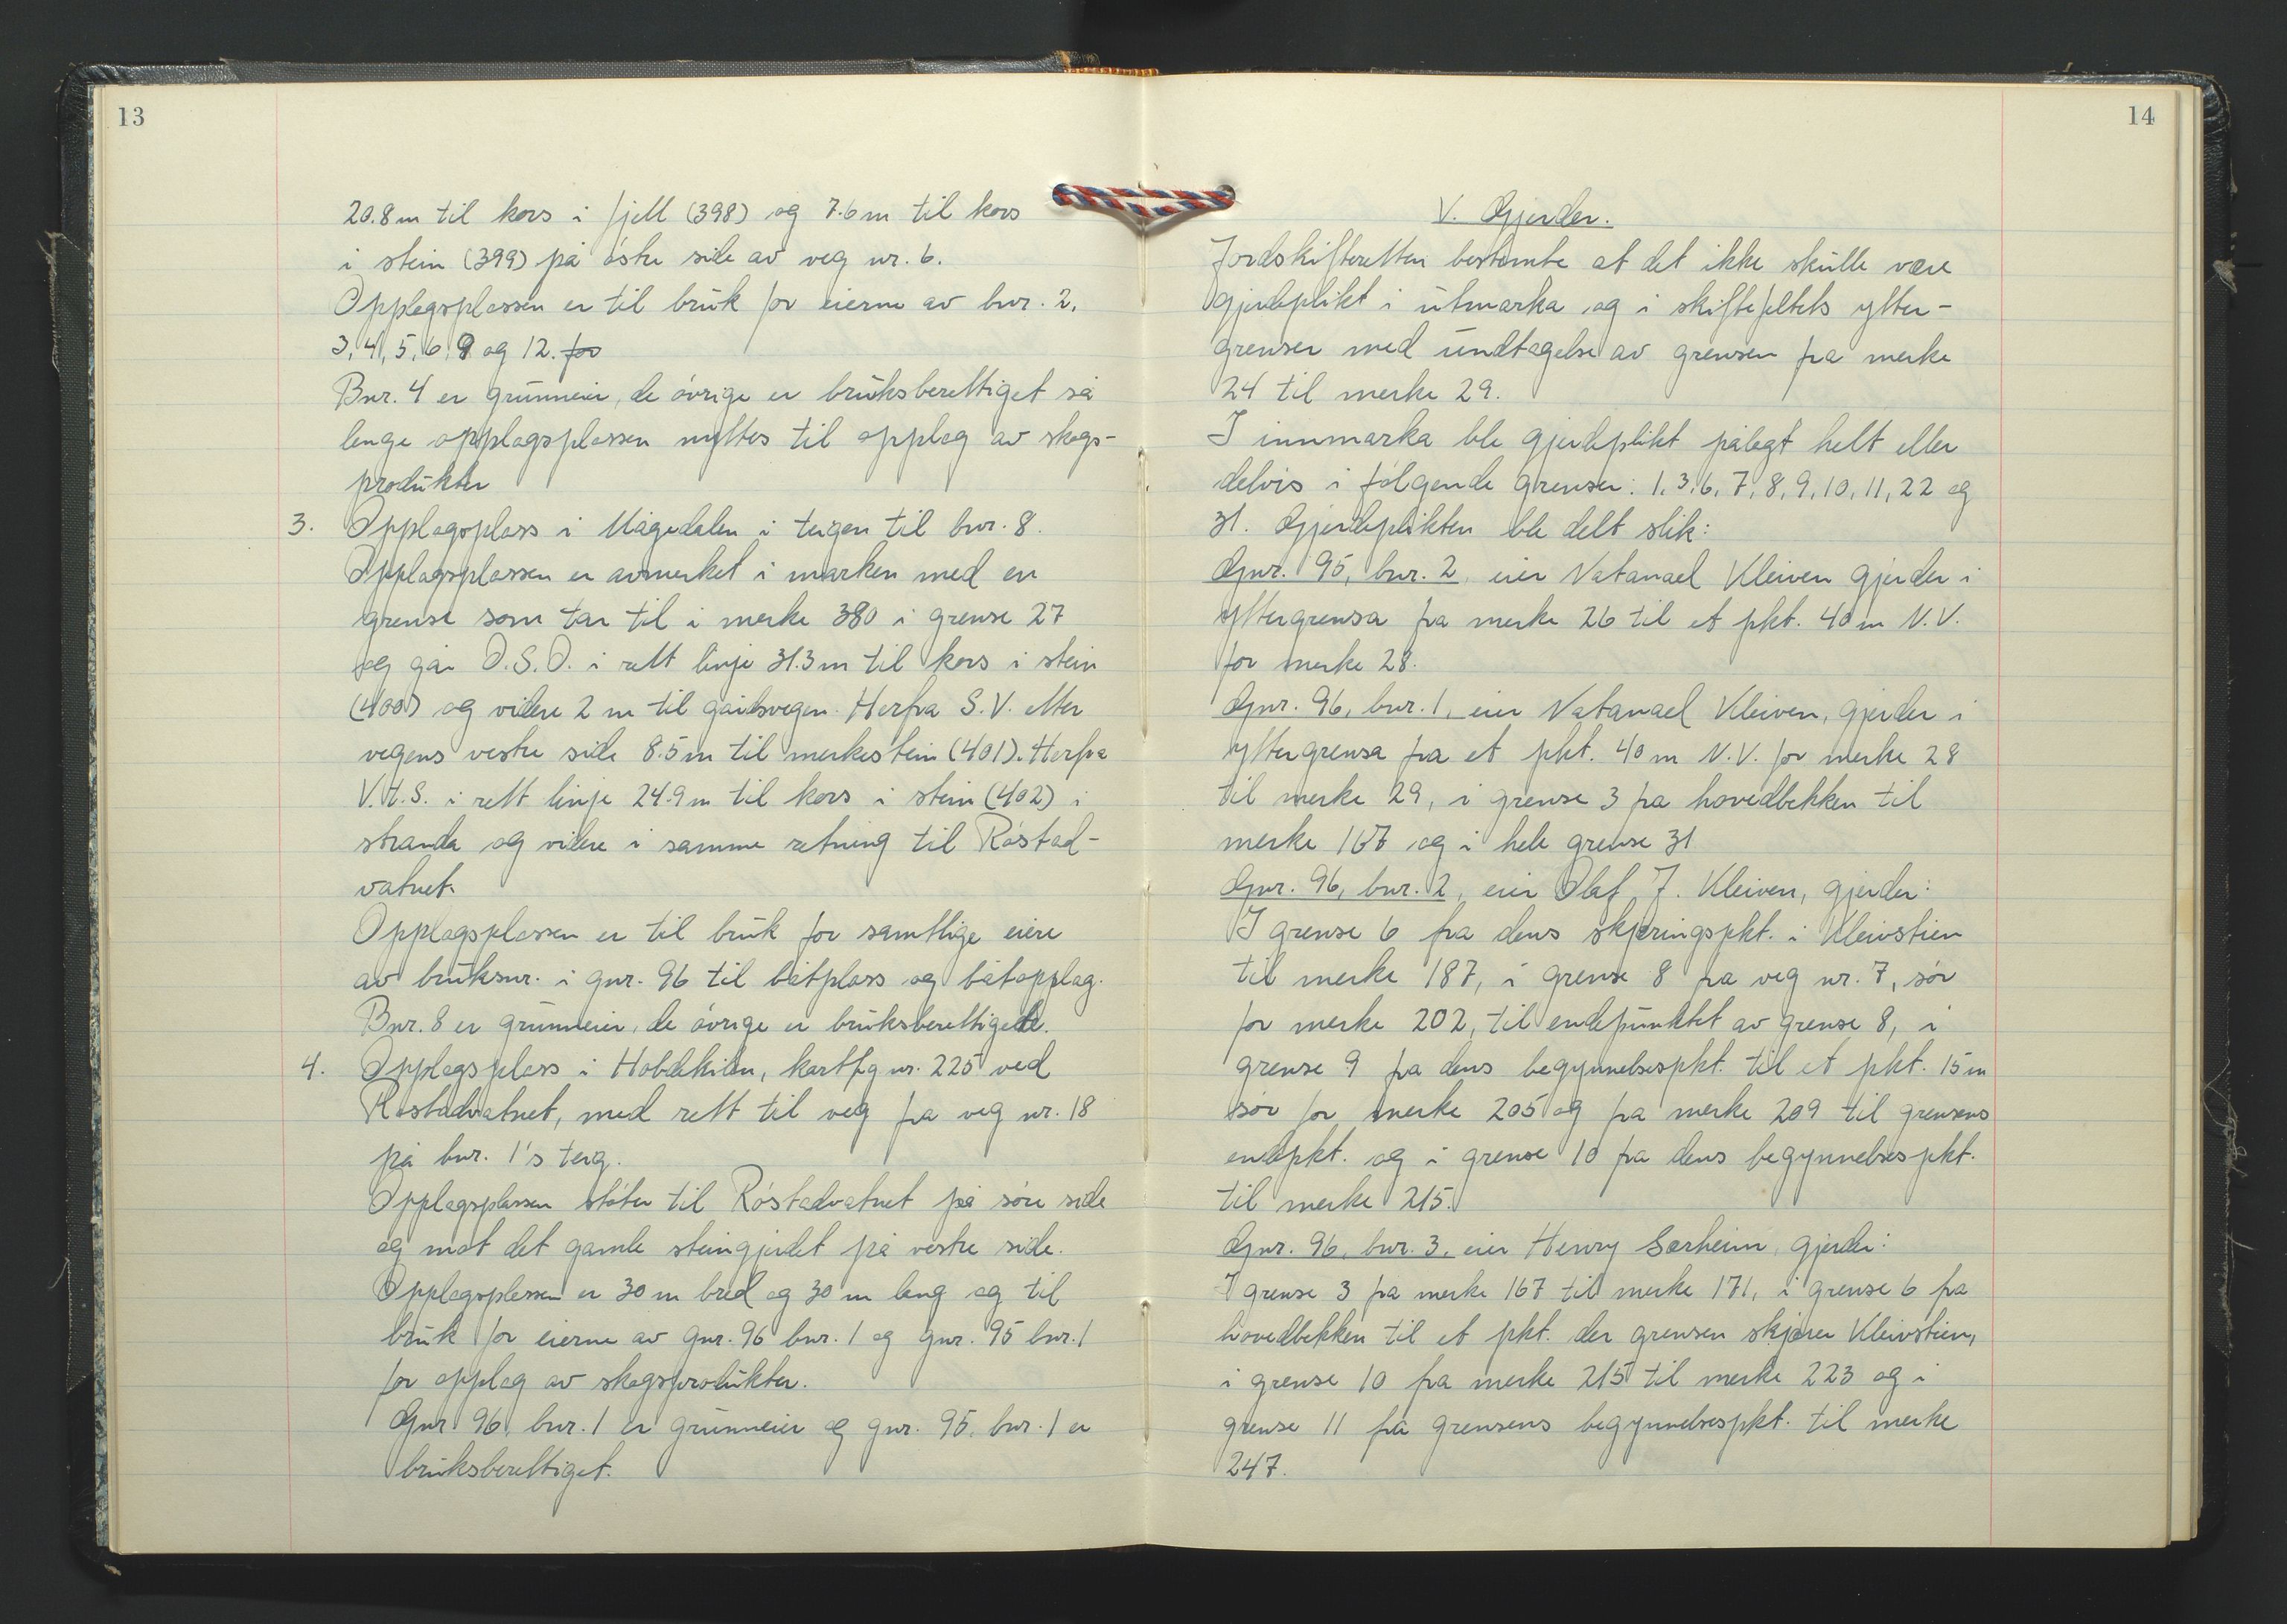 13
20.8 m til kors i fjell (398) og 7.6 m til kors
i stein (399) på østre side av veg nr. 6.
Opplagsplassen er til bruk for eierne av bnr. 2,
3, 4, 5, 6, 9 og 12. for
Bnr. 4 er grunneier, de øvrige er bruksberettiget så
lenge opplagsplassen nyttes til opplag av skogs-
produkter
3. Opplagsplass i Mågedalen i teigen til bnr. 8.
Opplagsplassen er avmerket i marken med en
grense som tar til i merke 380 i grense 27
og går O.S.O. i rett linje 31.3 m til kors i stein
(400) og videre 2 m til gårdsvegen. Herfra S.V. etter
vegens vestre side 8.5 m til merkestein (401). Herfra
V.t.S. i rett linje 24.9 m til kors i stein (402) i
stranda og videre i samme retning til Røstad-
vatnet.
Opplagsplassen er til bruk for samtlige eiere
av bruksnr. i gnr. 96 til båtplass og båtopplag.
Bnr. 8 er grunneier, de øvrige er bruksberettigede.
4. Opplagsplass i kartfig nr. 225 ved
Røstadvatnet, med rett til veg fra veg nr. 18
på bnr. 1's teig.
Opplagsplassen støter til Røstadvatnet på søre side
og mot det gamle steingjerdet på vestre side.
Opplagsplassen er 30 m bred og 30 m lang og til
bruk for eierne av gnr. 96 bnr. 1 og gnr. 95 bnr. 1
for opplag av skogsprodukter.
Gnr. 96, bnr. 1 er grunneier og gnr. 95, bnr. 1 er
bruksberettiget.
14
V. Gjerder.
Jordskifteretten bestemte at det ikke skulle være
gjerdeplikt i utmarka og i skiftefeltets ytter-
grenser med undtagelse av grensen fra merke
24 til merke 29.
I innmarka ble gjerdeplikt pålagt helt eller
delvis i følgende grenser: 1, 3, 6, 7, 8, 9, 10, 11, 22 og
31. Gjerdeplikten ble delt slik:
Gnr. 95, bnr. 2, eier Natanael Kleiven gjerder i
yttergrensa fra merke 26 til et pkt. 40 m N.V.
for merke 28.
Gnr. 96, bnr. 1, eier Natanael Kleiven, gjerder i
yttergrensa fra et pkt. 40 m N.V. for merke 28
til merke 29, i grense 3 fra hovedbekken til
merke 167 og i hele grense 31
Gnr. 96, bnr. 2, eier Olaf J. Kleiven, gjerder:
I grense 6 fra dens skjæringspkt. i Kleivstien
til merke 187, i grense 8 fra veg nr. 7, sør
for merke 202, til endepunktet av grense 8, i
grense 9 fra dens begynnelsespkt. til et pkt. 15 m
sør for merke 205 og fra merke 209 til grensens
endepkt. og i grense 10 fra dens begynnelsespkt.
til merke 215.
Gnr. 96, bnr. 3, eier Henry Sørheim, gjerder:
I grense 3 fra merke 167 til merke 171, i grense 6 fra
hovedbekken til et pkt. der grensen skjærer Kleivstien,
i grense 10 fra merke 215 til merke 223 og i
grense 11 fra grensens begynnelsespkt. til merke
247.